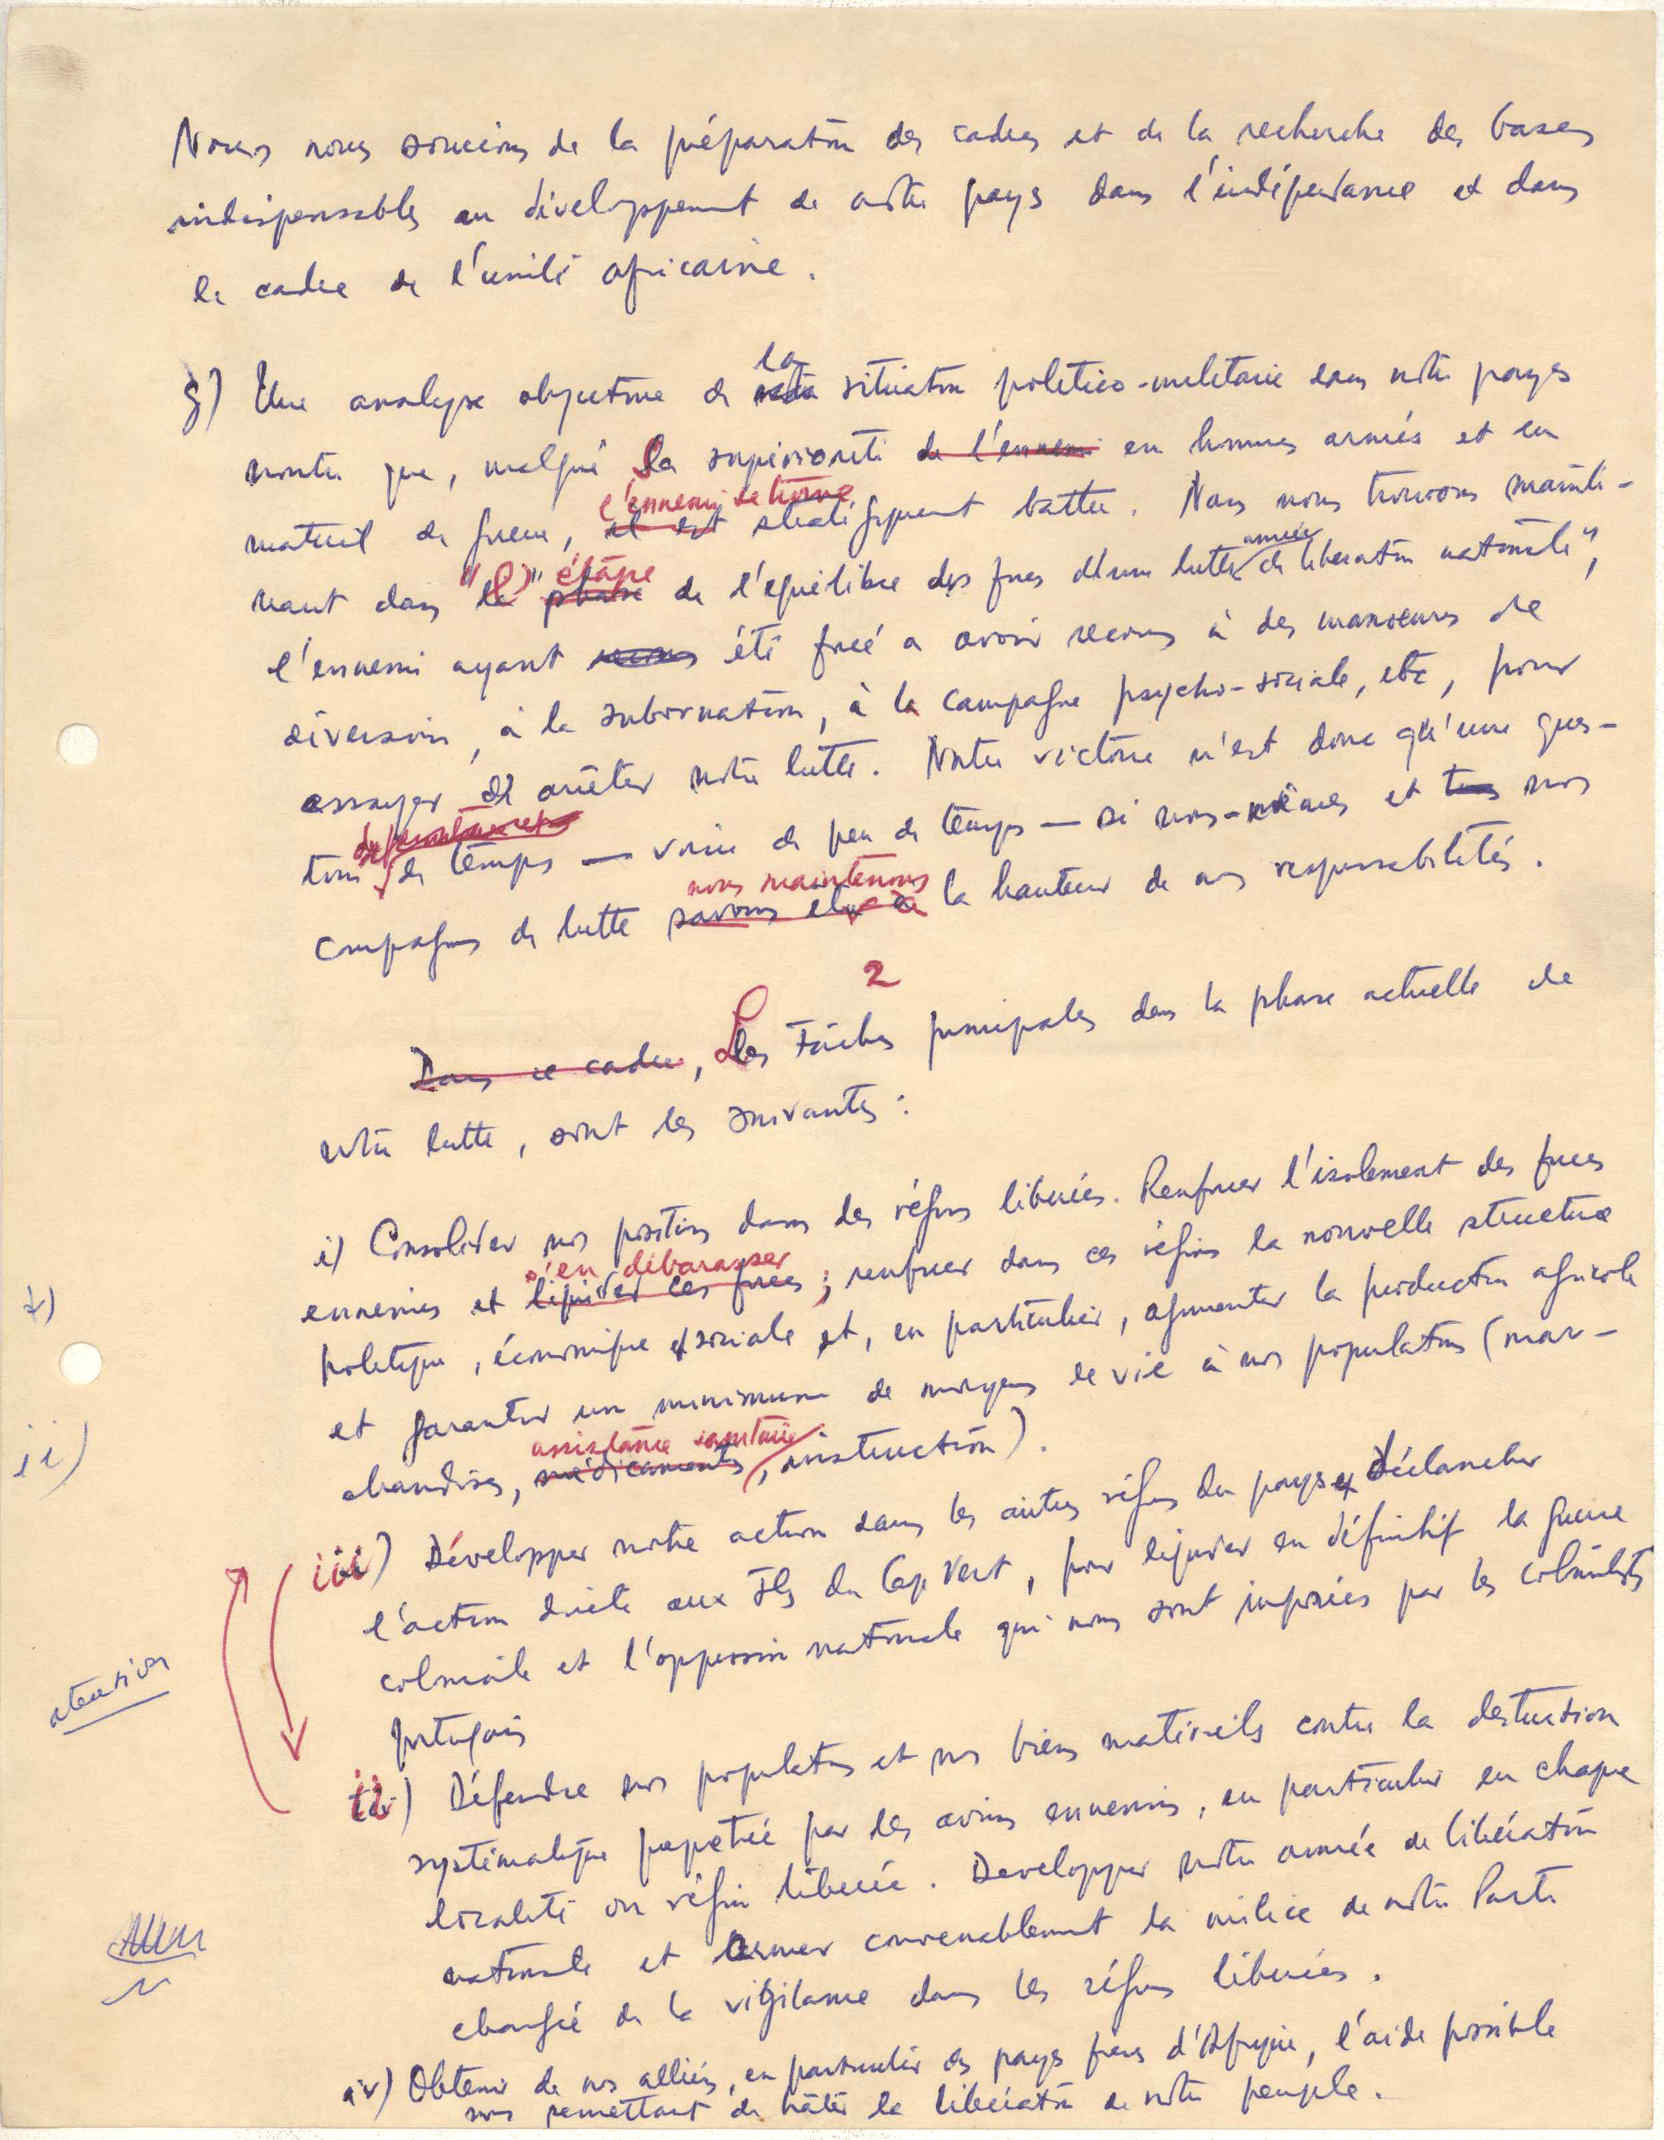 Nous nous soucions de la préparation des cadres et de la recherche des bases
indispensables au développement de notre pays dans l'indépendance et dans
le cadre de l'unité africaine.
la
g) Une analyse objective de situation politico-militaire dans notre pays
montre que, malgré la supériorité de l'ennemi en hommes armés et en
l'ennemi se trouve
matériel de guerre, il est stratégiquement battu. Nous nous trouvons mainte-
armée
"l'" étape
nant dans phase de l'équilibre des forces d'une lutte de libération nationale",
l'ennemi ayant recours été forcé a avoir recours à des manoeuvres de
diversion, à la subornation, à la campagne psycho-sociale, etc, pour
essayer d'arrêter notre lutte. Notre victoire n'est donc qu'une ques-
tion de temps — voire de peu de temps — si nous-mêmes et tous nos
nous maintenons
compagnons de lutte savons à la hauteur de nos responsabilités.
2
Dans ce cadre, Les tâches principales dans la phase actuelle de
notre lutte, sont les suivantes :
i) Consolider nos positions dans des régions libérées. Renforcer l'isolement des forces
s'en débarasser
ennemies et liquider ces forces ; renforcer dans ces régions la nouvelle structure
i)
politique, économique et sociale et, en particulier, augmenter la production agricole
et garantir un minimum de moyens de vie à nos populations (mar-
assistance sanitaire
ii)
chandises, médicaments, instruction).
iii) Développer notre action dans les autres régions du pays et déclancher
l'action directe aux Iles du Cap Vert, pour liquider en définitif la guerre
coloniale et l'oppression nationale qui nous sont imposées par les colonialistes
atension
portugais
ii) Défendre nos populations et nos biens matériels contre la destruction
systématique perpetrée par des avions ennemis, en particulier en chaque
localité ou région libérée. Developper notre armée de libération
nationale et armer convenablement la milice de notre Parti
chargée de la vigilance dans les régions libérées.
iv) Obtenir de nos alliés, en particulier des pays frères d'Afrique, l'aide possible
nous permettant de hâter la libération de notre peuple.